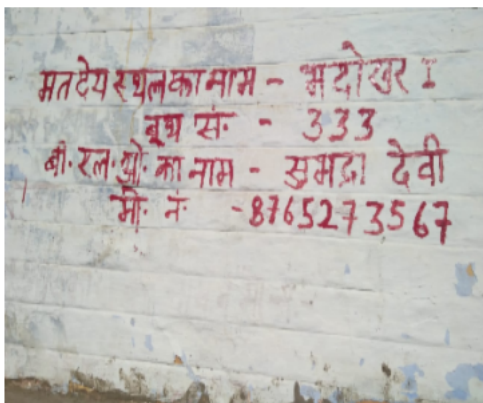 मतदेय स्थल का नाम - भदोखर I
बूथ सं. - 333
बी. एल. ओ. का नाम - सुभद्रा देवी
मो. नं. - 8765273567